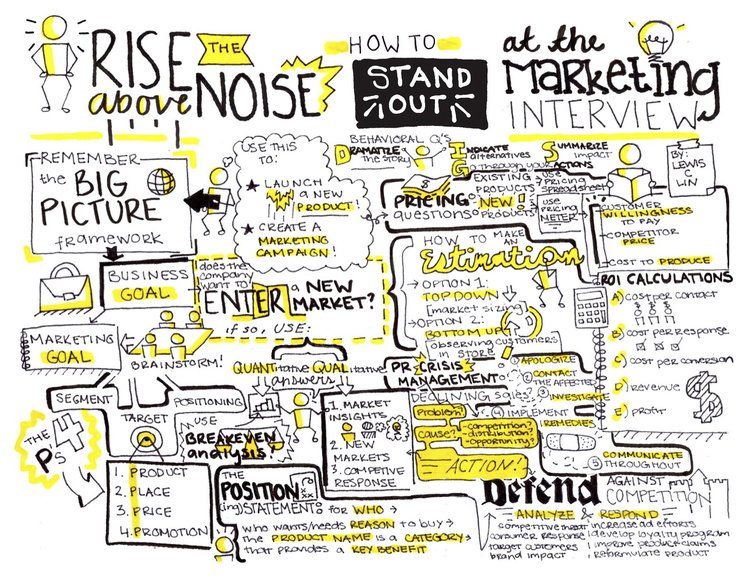 RISE
above
THE
NOISE
HOW TO
STAND
OUT
at the
Marketing
INTERVIEW
BY:
LEWIS
C
LIN
REMEMBER
the BIG
PICTURE
framework
USE THIS
TO:
★ LAUNCH
A NEW
PRODUCT!
★ CREATE A
MARKETING
CAMPAIGN!
BEHAVIORAL Q'S
DRAMATIZE
the STORY
INDICATE
alternatives
GO through your ACTIONS
SUMMARIZE
impact
PRICING
questions
EXISTING
PRODUCTS
NEW!
PRODUCTS
USE
PRICING
SPREADSHEET
USE
PRICING
METER
CUSTOMER
WILLINGNESS
TO PAY
COMPETITOR
PRICE
COST TO PRODUCE
BUSINESS
GOAL
MARKETING
GOAL
BRAINSTORM!
does the
company
want to
ENTER a NEW
MARKET?
if so, USE:
QUANTitative QUALitative
answers
HOW TO MAKE
AN
Estimation
→ OPTION 1:
TOP DOWN
[market sizing]
→ OPTION 2:
BOTTOM UP
[observing customers
in STORE]
ROI CALCULATIONS
A) cost per contact
B) cost per response
C) cost per conversion
D) revenue
E) profit
SEGMENT
TARGET
POSITIONING
THE
4
Ps
1. PRODUCT
2. PLACE
3. PRICE
4. PROMOTION
USE
BREAKEVEN
analysis!
1. MARKET
INSIGHTS
2. NEW
MARKETS
3. COMPETIVE
RESPONSE
PR CRISIS
MANAGEMENT
① APOLOGIZE
② CONTACT
THE AFFECTED
③ INVESTIGATE
④ IMPLEMENT
REMEDIES
⑤ COMMUNICATE
THROUGHOUT
DECLINING SALES
Problem?
cause?
-competition?
-distribution?
-opportunity?
ACTION!
THE
POSITION
(ing) STATEMENT: for WHO →
who wants/needs REASON to buy →
the PRODUCT NAME is a CATEGORY →
that provides a KEY BENEFIT
Defend
AGAINST
COMPETITION
ANALYZE & RESPOND
competitive threat
consumer response
target customers
brand impact
increase ad efforts
develop loyalty program
improve product claims
reformulate product